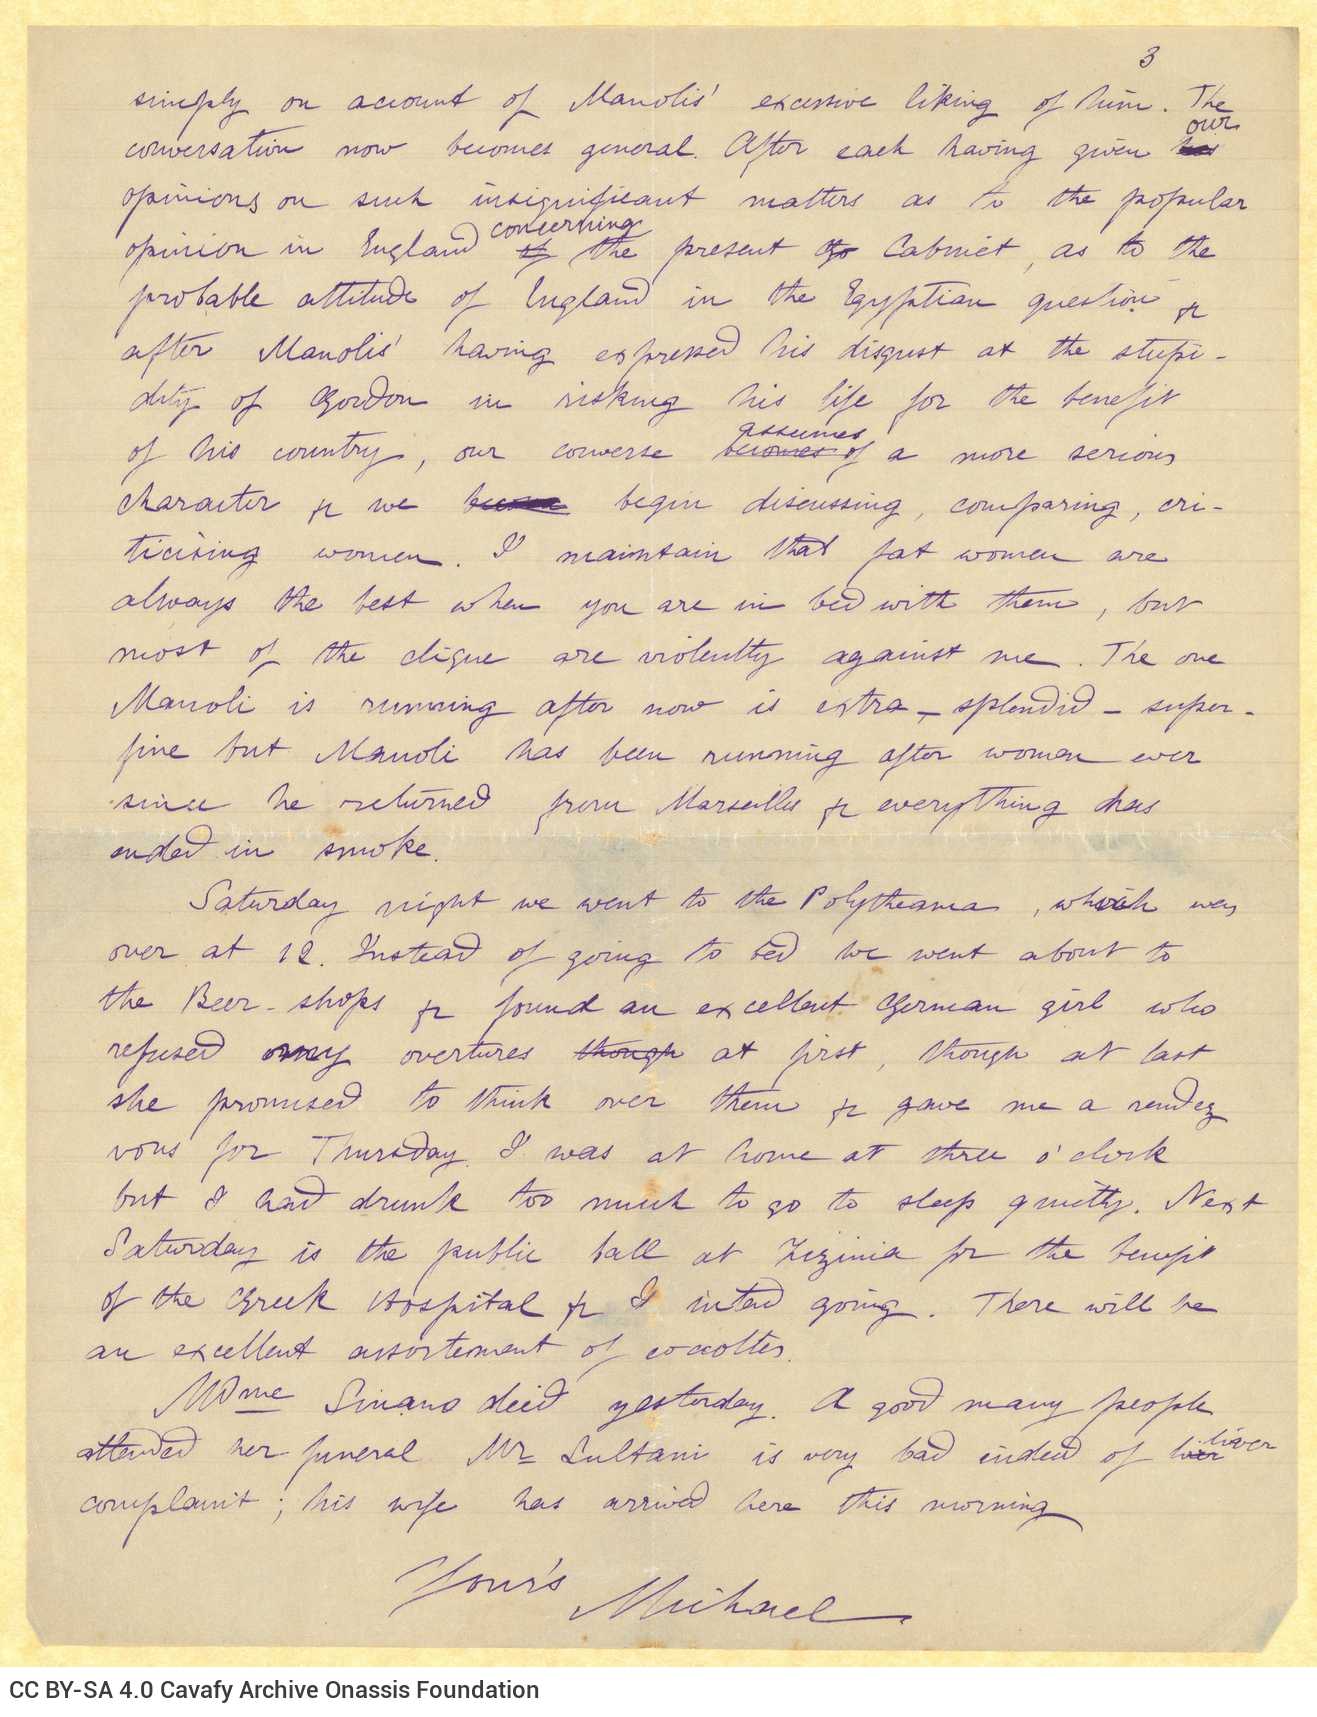 3
simply on account of Manolis' excessive liking of him. The
conversation now becomes general. After each having given our
opinions on such insignificant matters as to the popular
opinion in England concerning the present Cabinet, as to the
probable attitude of England in the Egyptian question &
after Manolis' having expressed his disgust at the stupi-
dity of Gordon in risking his life for the benefit
of his country, our converse becomes assumes of a more serious
character & we begin discussing, comparing, cri-
ticising women. I maintain that fat women are
always the best when you are in bed with them, but
most of the clique are violently against me. The one
Manoli is running after now is extra-splendid-super-
fine but Manoli has been running after women ever
since he returned from Marseilles & everything has
ended in smoke.
Saturday night we went to the Polytheama, which was
over at 12. Instead of going to bed we went about to
the Beer-shops & found an excellent German girl who
refused my overtures though at first, though at last
she promised to think over them & gave me a rendez
vous for Thursday. I was at home at three o'clock
but I had drunk too much to go to sleep quietly. Next
Saturday is the public ball at Zizinia for the benefit
of the Greek Hospital & I intend going. There will be
an excellent assortement of cocottes.
Mdme Sinano died yesterday. A good many people
attended her funeral Mr Sultani is very bad indeed of liver
complaint; his wife has arrived here this morning
Your's
Michael
CC BY-SA 4.0 Cavafy Archive Onassis Foundation